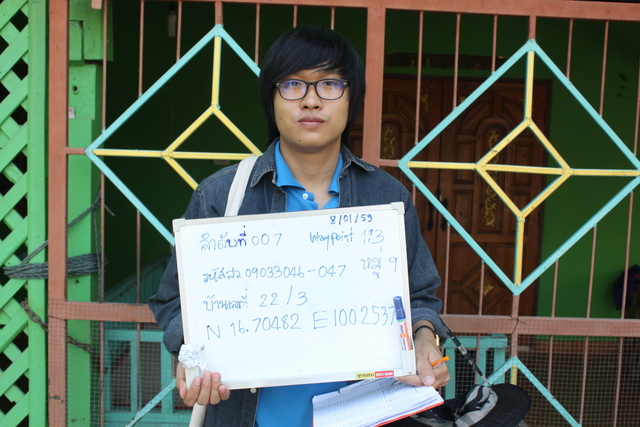 8/01/59
ลำดับที่ 007 Waypoint 113
รหัสสว 09033046-047 หมู่ 9
บ้านเลขที่ 22/3
N 16.70482 E100.2537
TOTO